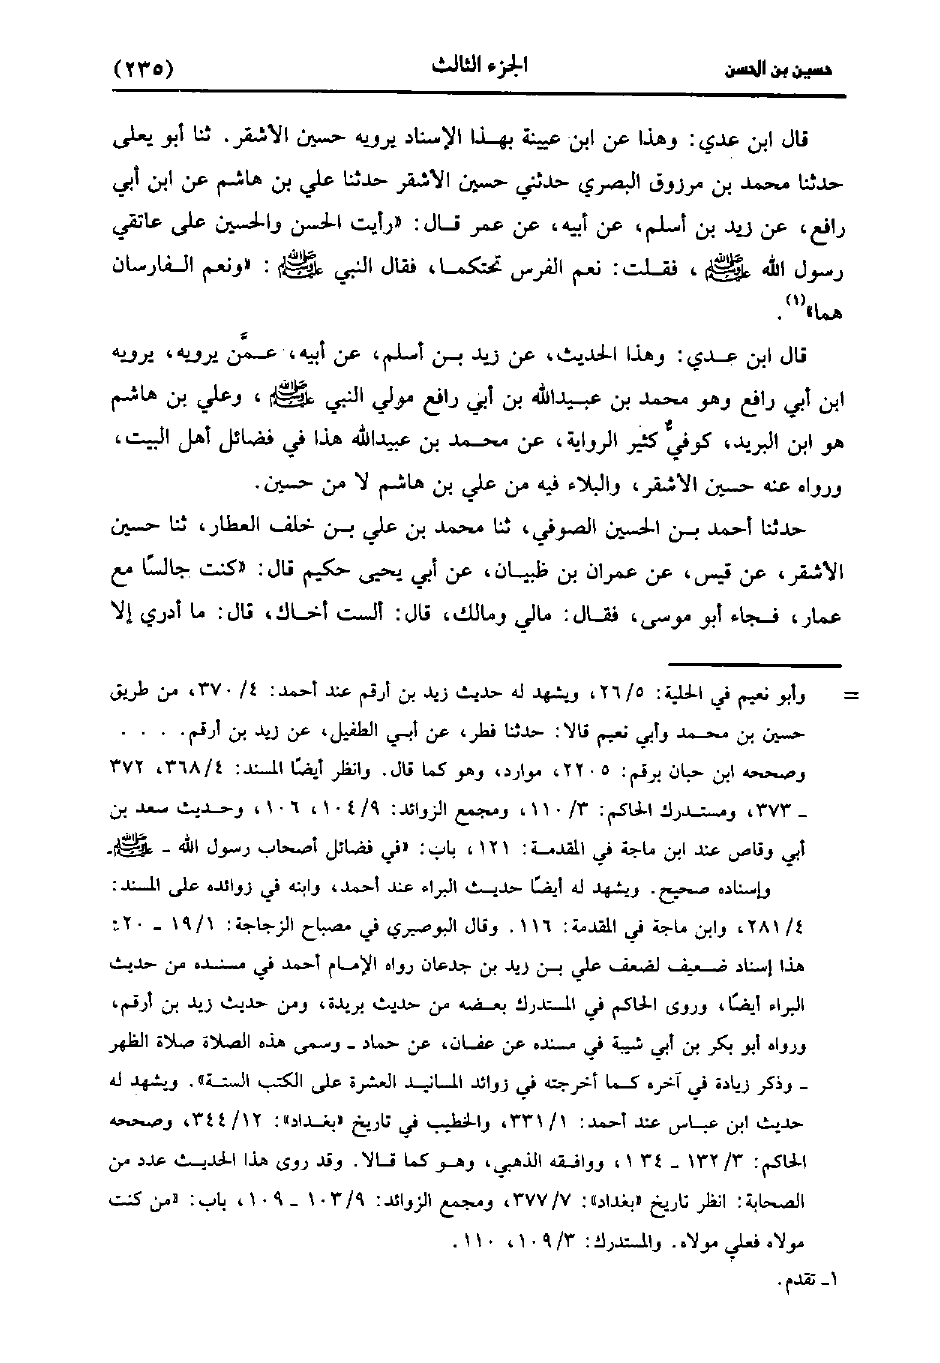 حسين بن الحسن الجزء الثالث (٢٣٥)
قال ابن عدي: وهذا عن ابن عيينة بهذا الإسناد يرويه حسين الأشقر. ثنا أبو يعلى
حدثنا محمد بن مرزوق البصري حدثني حسين الأشقر حدثنا علي بن هاشم عن ابن أبي
رافع، عن زيد بن أسلم، عن أبيه، عن عمر قال: «رأيت الحسن والحسين على عاتقي
رسول الله ﷺ، فقلت: نعم الفرس تحتكما، فقال النبي ﷺ: «ونعم الفارسان
هما»(١).
قال ابن عدي: وهذا الحديث، عن زيد بن أسلم، عن أبيه، عمَّن يرويه، يرويه
ابن أبي رافع وهو محمد بن عبيدالله بن أبي رافع مولي النبي ﷺ، وعلي بن هاشم
هو ابن البريد، كوفيٌّ كثير الرواية، عن محمد بن عبيدالله هذا في فضائل أهل البيت،
ورواه عنه حسين الأشقر، والبلاء فيه من علي بن هاشم لا من حسين.
حدثنا أحمد بن الحسين الصوفي، ثنا محمد بن علي بن خلف العطار، ثنا حسين
الأشقر، عن قيس، عن عمران بن ظبيان، عن أبي يحيى حكيم قال: «كنت جالسًا مع
عمار، فجاء أبو موسى، فقال: مالي ومالك، قال: ألست أخاك، قال: ما أدري إلا
= وأبو نعيم في الحلية: ٢٦/٥، ويشهد له حديث زيد بن أرقم عند أحمد: ٣٧٠/٤، من طريق
حسين بن محمد وأبي نعيم قالا: حدثنا فطر، عن أبي الطفيل، عن زيد بن أرقم. . . .
وصححه ابن حبان برقم: ٢٢٠٥، موارد، وهو كما قال. وانظر أيضًا المسند: ٣٦٨/٤، ٣٧٢
ـ ٣٧٣، ومستدرك الحاكم: ١١٠/٣، ومجمع الزوائد: ١٠٤/٩، ١٠٦، وحديث سعد بن
أبي وقاص عند ابن ماجة في المقدمة: ١٢١، باب: «في فضائل أصحاب رسول الله ـ ﷺ ـ
وإسناده صحيح. ويشهد له أيضًا حديث البراء عند أحمد، وابنه في زوائده على المسند:
٢٨١/٤، وابن ماجة في المقدمة: ١١٦. وقال البوصيري في مصباح الزجاجة: ١٩/١ ـ ٢٠:
هذا إسناد ضعيف لضعف علي بن زيد بن جدعان رواه الإمام أحمد في مسنده من حديث
البراء أيضًا، وروى الحاكم في المستدرك بعضه من حديث بريدة، ومن حديث زيد بن أرقم،
ورواه أبو بكر بن أبي شيبة في مسنده عن عفان، عن حماد ـ وسمى هذه الصلاة صلاة الظهر
ـ وذكر زيادة في آخره كما أخرجته في زوائد المسانيد العشرة على الكتب الستة». ويشهد له
حديث ابن عباس عند أحمد: ٣٣١/١، والخطيب في تاريخ «بغداد»: ٣٤٤/١٢، وصححه
الحاكم: ١٣٢/٣ ـ ١٣٤، ووافقه الذهبي، وهو كما قالا. وقد روى هذا الحديث عدد من
الصحابة: انظر تاريخ «بغداد»: ٣٧٧/٧، ومجمع الزوائد: ١٠٣/٩ ـ ١٠٩، باب: «من كنت
مولاه فعلي مولاه. والمستدرك: ١٠٩/٣، ١١٠.
١ـ تقدم.